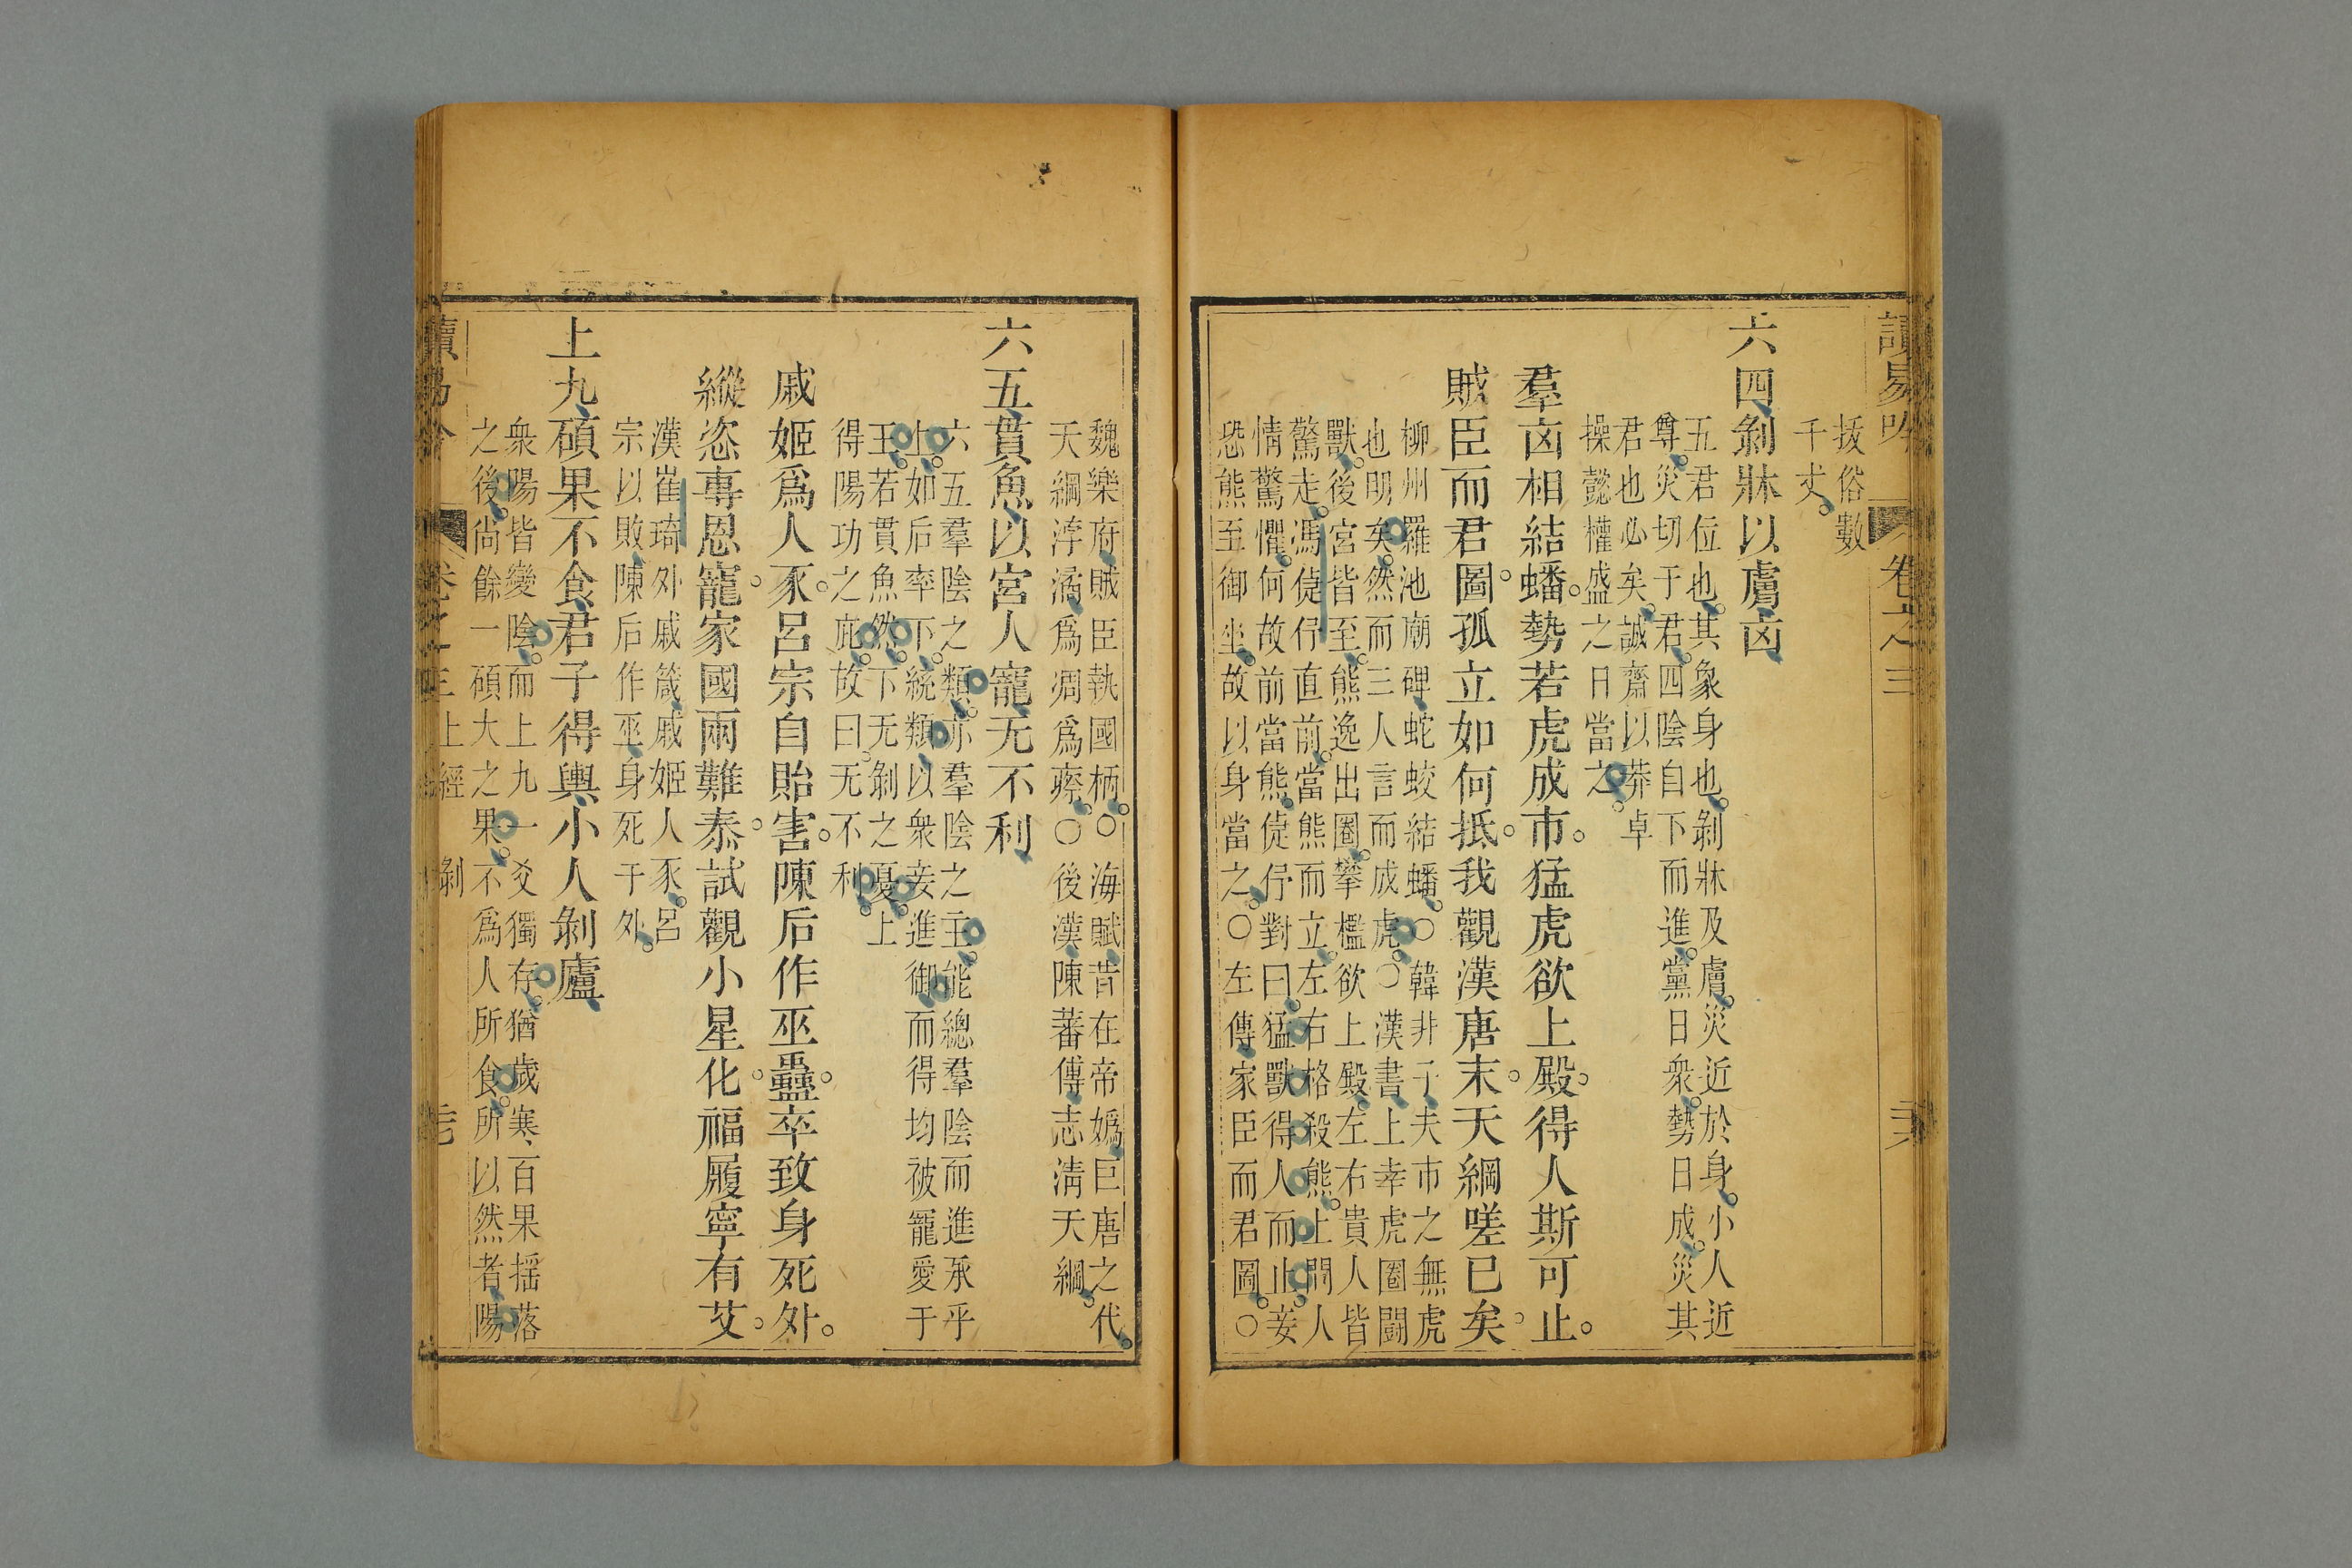 讀易吟
卷之三
抜俗數
千丈
六四剝牀以膚㐫
五君位也其象身也剝牀及膚災近於身小人近
尊災切于君四陰自下而進黨日衆勢日成災其
君也必矣誠齋以莽卓
操懿權盛之日當之
羣㐫相結蟠勢若虎成市猛虎欲上殿得人斯可止
賊臣而君圖孤立如何抵我觀漢唐末天綱嗟已矣
柳州羅池廟碑蛇蛟結蟠○韓非子夫市之無虎
也明矣然而三人言而成虎○漢書上幸虎圈鬪
獸後宮皆至熊逸出圈攀檻欲上殿左右貴人皆
驚走馮倢伃直前當熊而立左右格殺熊上問人
情驚懼何故前當熊倢伃對曰猛獸得人而止妾
恐熊至御坐故以身當之○左傳家臣而君圖○
魏樂府賊臣執國柄○海賦昔在帝嬀巨唐之代
天綱浡潏爲凋爲瘵○後漢陳蕃傳志淸天綱
六五貫魚以宮人寵无不利
六五羣陰之類亦羣陰之主能總羣陰而進承乎
上如后率下統類以衆妾進御而得均被寵愛于
王若貫魚然下无剝之憂上
得陽功之庇故曰无不利
戚姬爲人豕呂宗自貽害陳后作巫蠱卒致身死外
縱恣專恩寵家國兩難泰試觀小星化福履寧有艾
漢崔琦外戚箴戚姬人豕呂
宗以敗陳后作巫身死于外
上九碩果不食君子得輿小人剝廬
衆陽皆變陰而上九一爻獨存猶歲寒百果揺落
之後尙餘一碩大之果不爲人所食所以然者陽
讀易吟
卷之三上經
剝